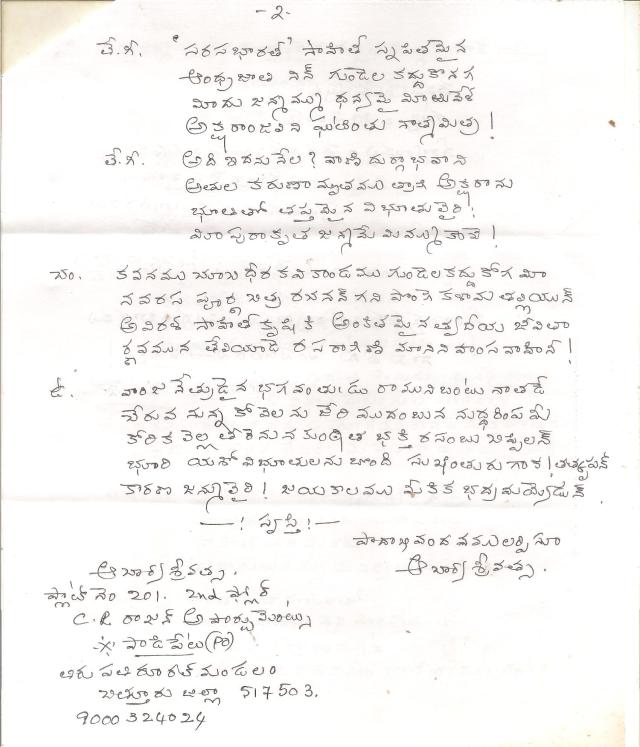 - 2 -
తే.గీ. 'సరసభారతి' సాహితీ స్నపితమైన
ఆంధ్రజాతి నిన్ గుండెల కద్దుకొనగ
మీదు జన్మమ్ము ధన్యమై మీఱువేళ
అక్షరాంజలిని ఘటింతు నాత్మమిత్ర!
తే.గీ. అరి ఇదనునేల? వాణి దుర్గాభవాని
అతుల కరుణామృతము త్రాగి అక్షరాను
భూతితో తప్తమైన విభూతులైరి!
మీ పురాకృత జన్మమే మిమ్ము కాచె!
చం. కవనము చూఱ ధీర కవికాండము గుండెలకద్దుకోగ మీ
నవరస పూర్ణ చిత్ర రచనన్ గని పొంగె కళామతల్లియున్
అవిరళ సాహితీకృషికి అంకితమైన త్వదీయ జీవితా
ర్ణవమున తేలియాడె రసరాగిణి మానిని హంసవాహినీ!
ఉ. వారిజ నేత్రుడైన భగవంతుడు రాముని బంటు నాతడే
చేరువ నున్న కోవెలను జేరి ముదంబున నుద్ధరింపమీ
కోరిక వెల్ల తీరెనున కుంఠిత భక్తి రసంబు చిప్పిలన్
భూరి యశోవిభూతులను బొంది సుఖింతురు గాక! తత్కృపన్
కారణ జన్ములైరి! జయకాలము మీకిక భద్రమయ్యెడున్
—! స్వస్తి! —
పాదాభివందనములర్పిస్తూ
ఆచార్య శ్రీవత్స.
ఆచార్య శ్రీవత్స.
ప్లాట్ నెం 201. 2nd ఫ్లోర్
C.R రాజన్ అపార్టుమెంట్సు
పాడిపేట (PO)
తిరుపతి రూరల్ మండలం
చిత్తూరు జిల్లా 517503.
9000324024